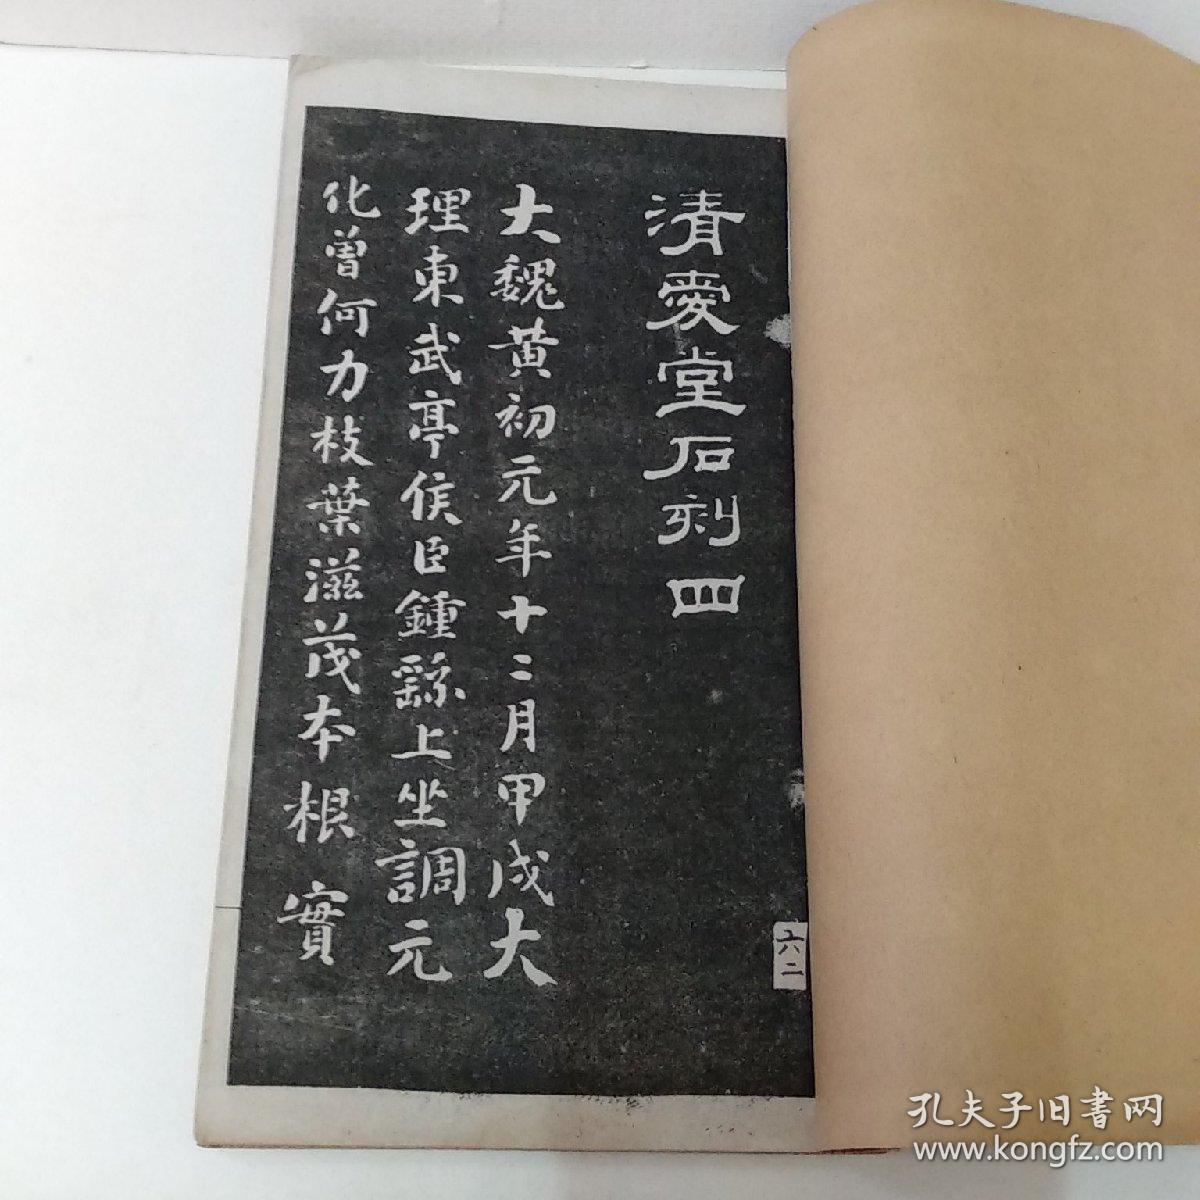 清愛堂石刻四
大魏黄初元年十二月甲戌大
理東武亭侯臣鍾繇上坐調元
化曾何力枝葉滋茂本根實
六二
孔夫子旧書网
www.kongfz.com